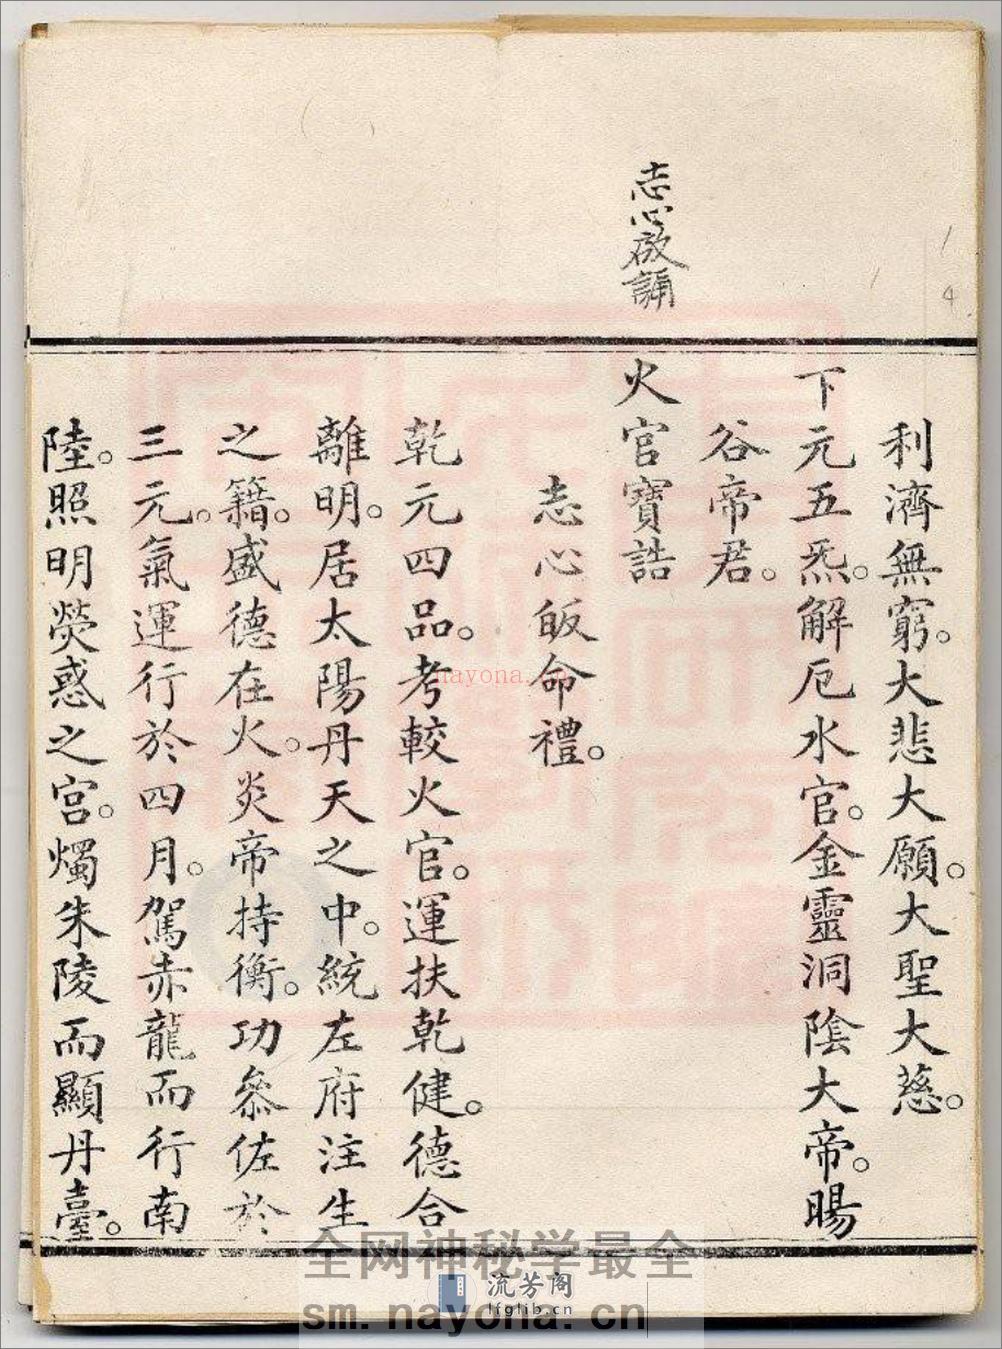 利濟無窮。大悲大願。大聖大慈。
下元五炁。解厄水官。金靈洞陰大帝。暘
谷帝君。
志心啟誦
火官寶誥
志心皈命禮。
乾元四品。考較火官。運扶乾健。德合
離明。居太陽丹天之中。統左府注生
之籍。盛德在火。炎帝持衡。功叅佐於
三元。氣運行於四月。駕赤龍而行南
陸。照明熒惑之宮。燭朱陵而顯丹臺。
4
nayona.cn
全网神秘学最全
流芳阁
lfglib.cn
sm.nayona.cn